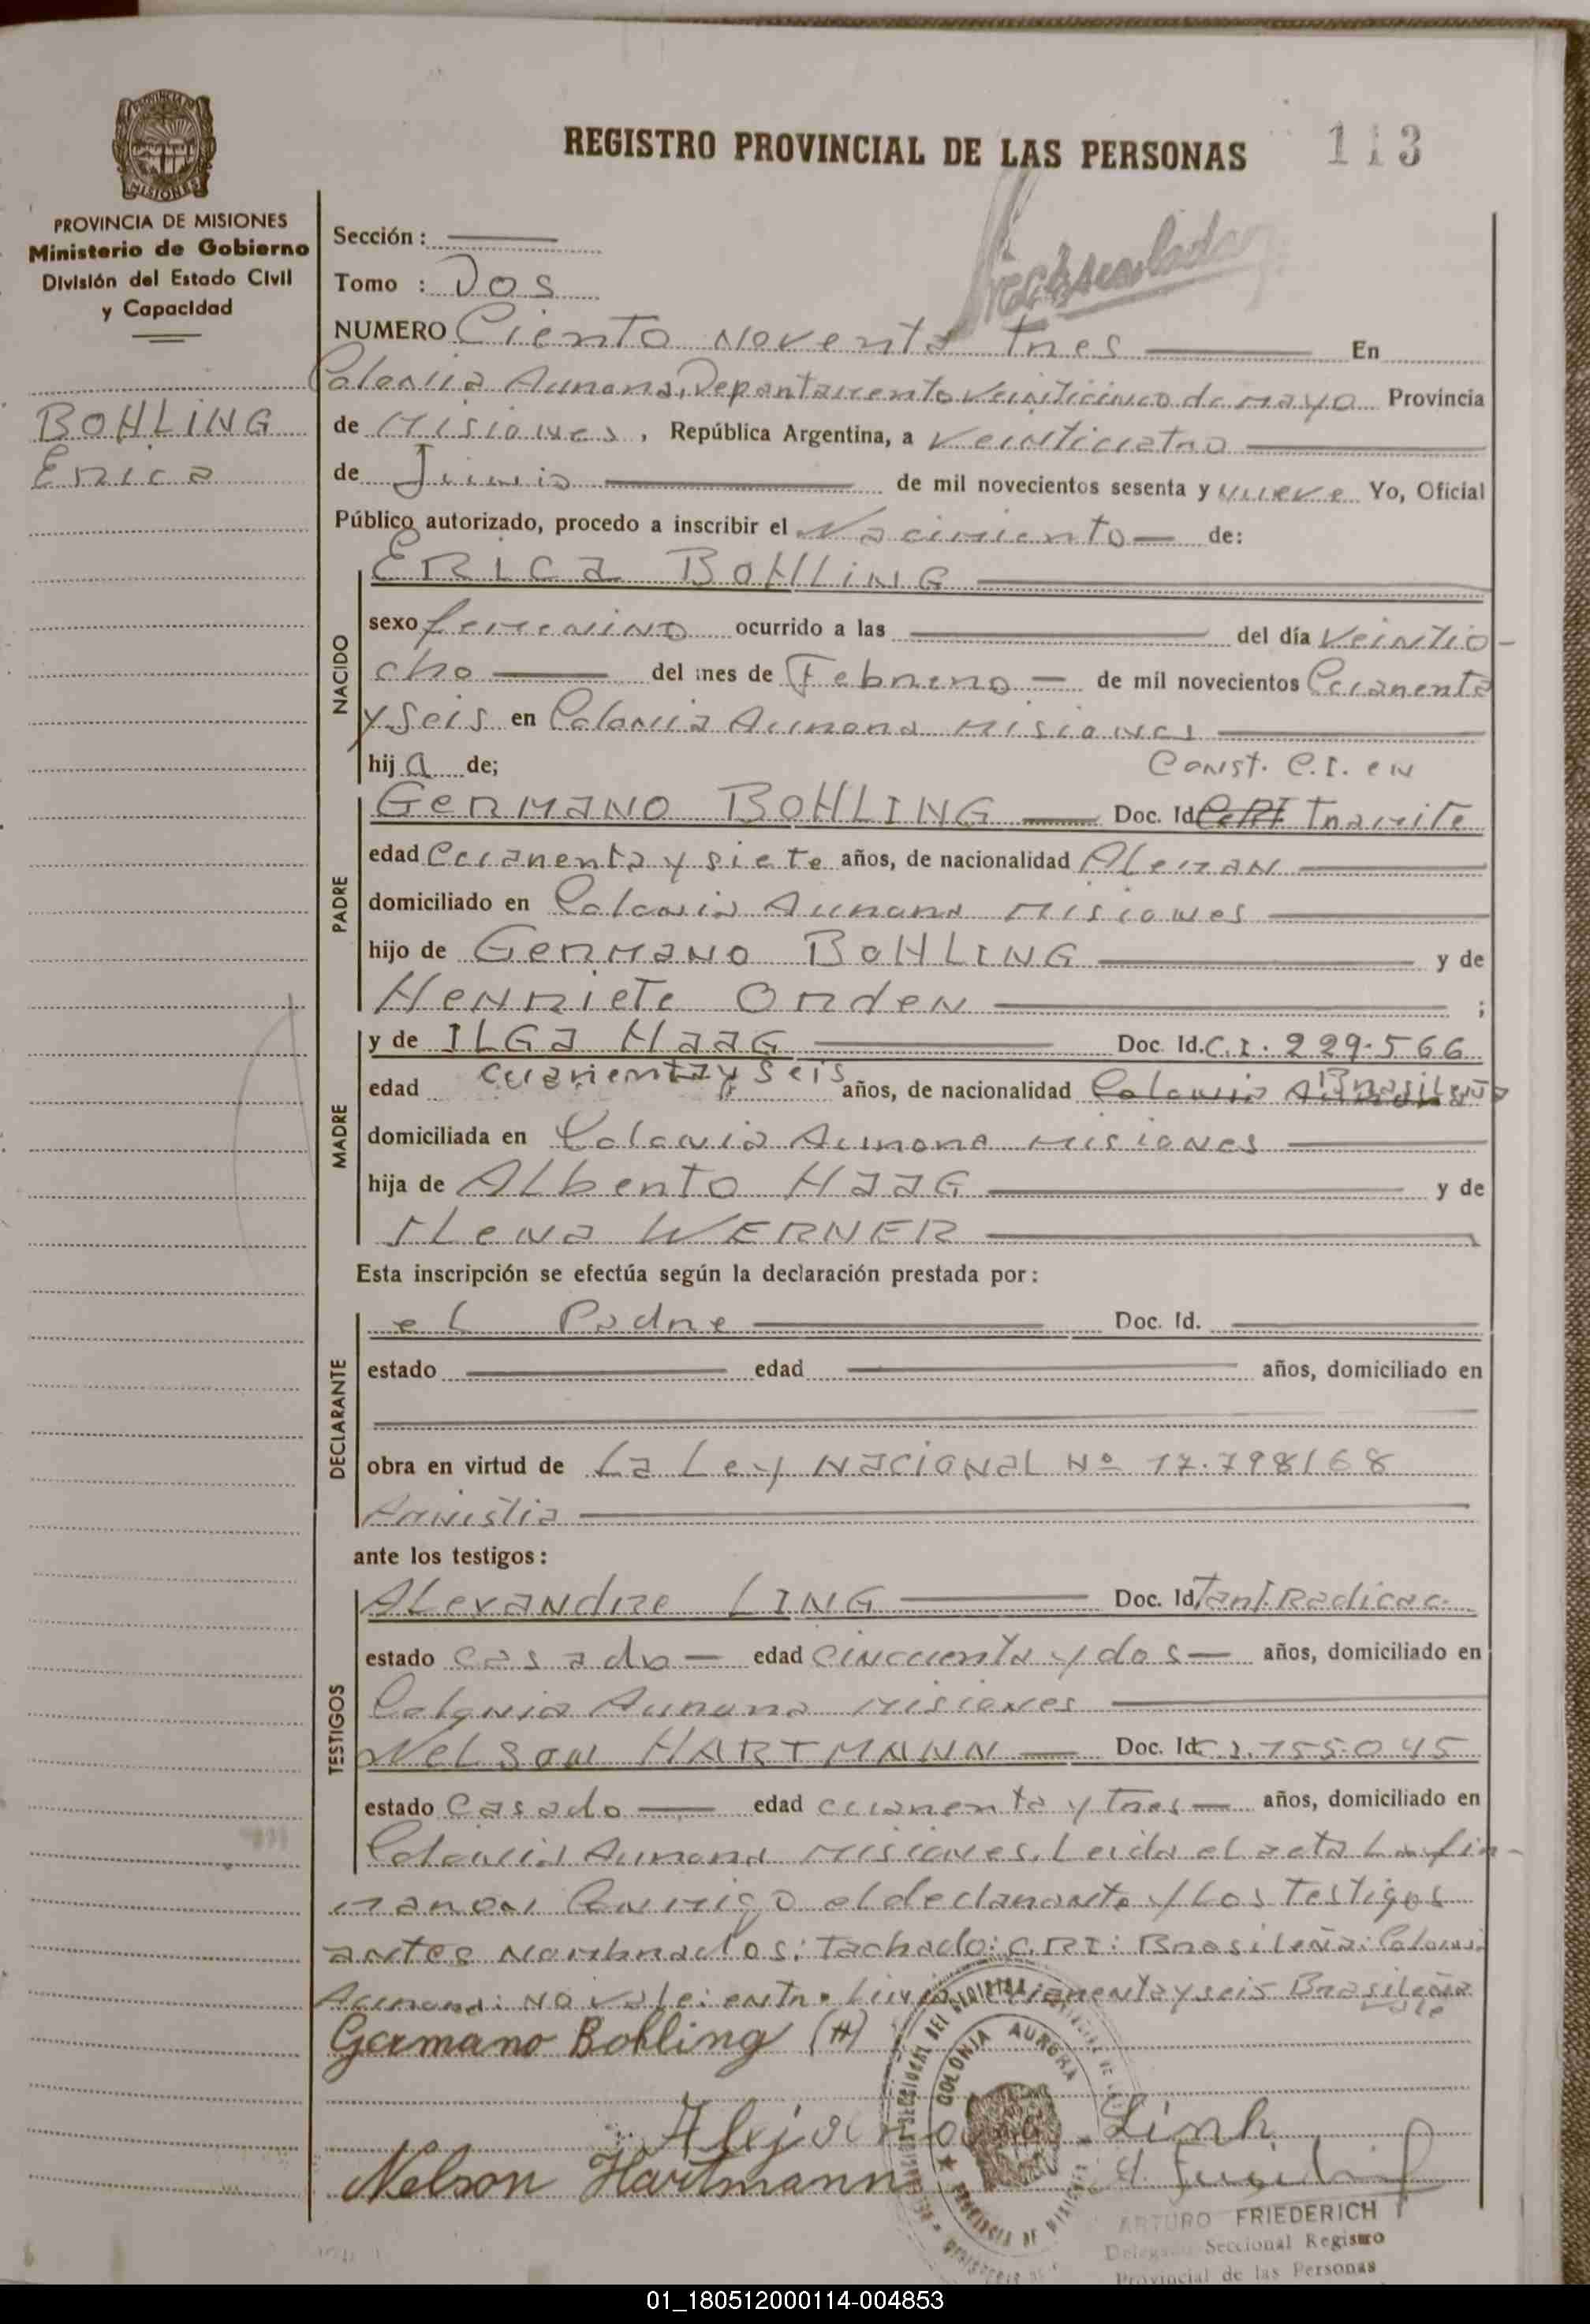 REGISTRO PROVINCIAL DE LAS PERSONAS 113
PROVINCIA DE MISIONES
Ministerio de Gobierno
División del Estado Civil
y Capacidad
BOHLING
Erica
Sección :
Tomo : Dos
NUMERO Ciento Noventa tres En
Colonia Aurora, Departamento Veinticinco de mayo Provincia
de Misiones, República Argentina, a Veinticuatro
de Junio de mil novecientos sesenta y nueve Yo, Oficial
Público autorizado, procedo a inscribir el Nacimiento de:
NACIDO
ERICA BOHLING
sexo femenino ocurrido a las del día Veintio-
cho del mes de Febrero de mil novecientos Cuarenta
y seis en Colonia Aurora Misiones
hija de; Const. C.I. en
PADRE
Germano BOHLING Doc. Id. Tramite
edad Cuarenta y siete años, de nacionalidad Aleman
domiciliado en Colonia Aurora Misiones
hijo de Germano BOHLING y de
Henriete Orden ;
MADRE
y de ILGa HaaG Doc. Id. C.I. 229.566
edad cuarienta y seis años, de nacionalidad Colonia Aurora Brasileña
domiciliada en Colonia Aurora Misiones
hija de Alberto HaaG y de
ILena WERNER
Esta inscripción se efectúa según la declaración prestada por :
DECLARANTE
el Padre Doc. Id.
estado edad años, domiciliado en
obra en virtud de La Ley Nacional Nº 17.798/68
Amistia
ante los testigos :
TESTIGOS
Alexandre LING Doc. Id. Tarj. Radicac.
estado Casado edad cincuenta y dos años, domiciliado en
Colonia Aurora Misiones
Nelson HARTMANN Doc. Id. C.I. 155.045
estado Casado edad cuarenta y tres años, domiciliado en
Colonia Aurora Misiones. Leida el acta La fir-
maron Conmigo el declarante y Los testigos
antes Nombrados: Tachado: C.RI: Brasileña: Coloni
Aurora: NO vale: entre linia cuarienta y seis Brasileña
vale
Germano Bohling (H)
COLONIA AURORA
PROVINCIA DE MISIONES
Linh
Nelson Hartmann
ARTURO FRIEDERICH
Delegado Seccional Registro
Provincial de las Personas
01_180512000114-004853